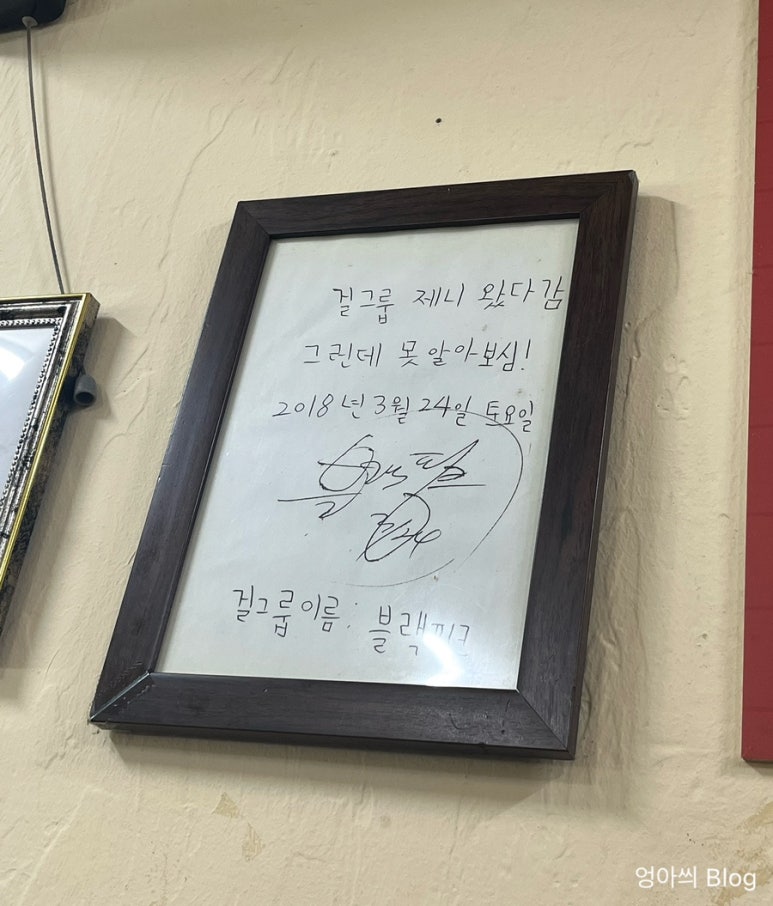 걸그룹 제니 왔다감
그런데 못 알아보심!
2018년 3월 24일 토요일
걸그룹이름: 블랙핑크
엉아씌 Blog